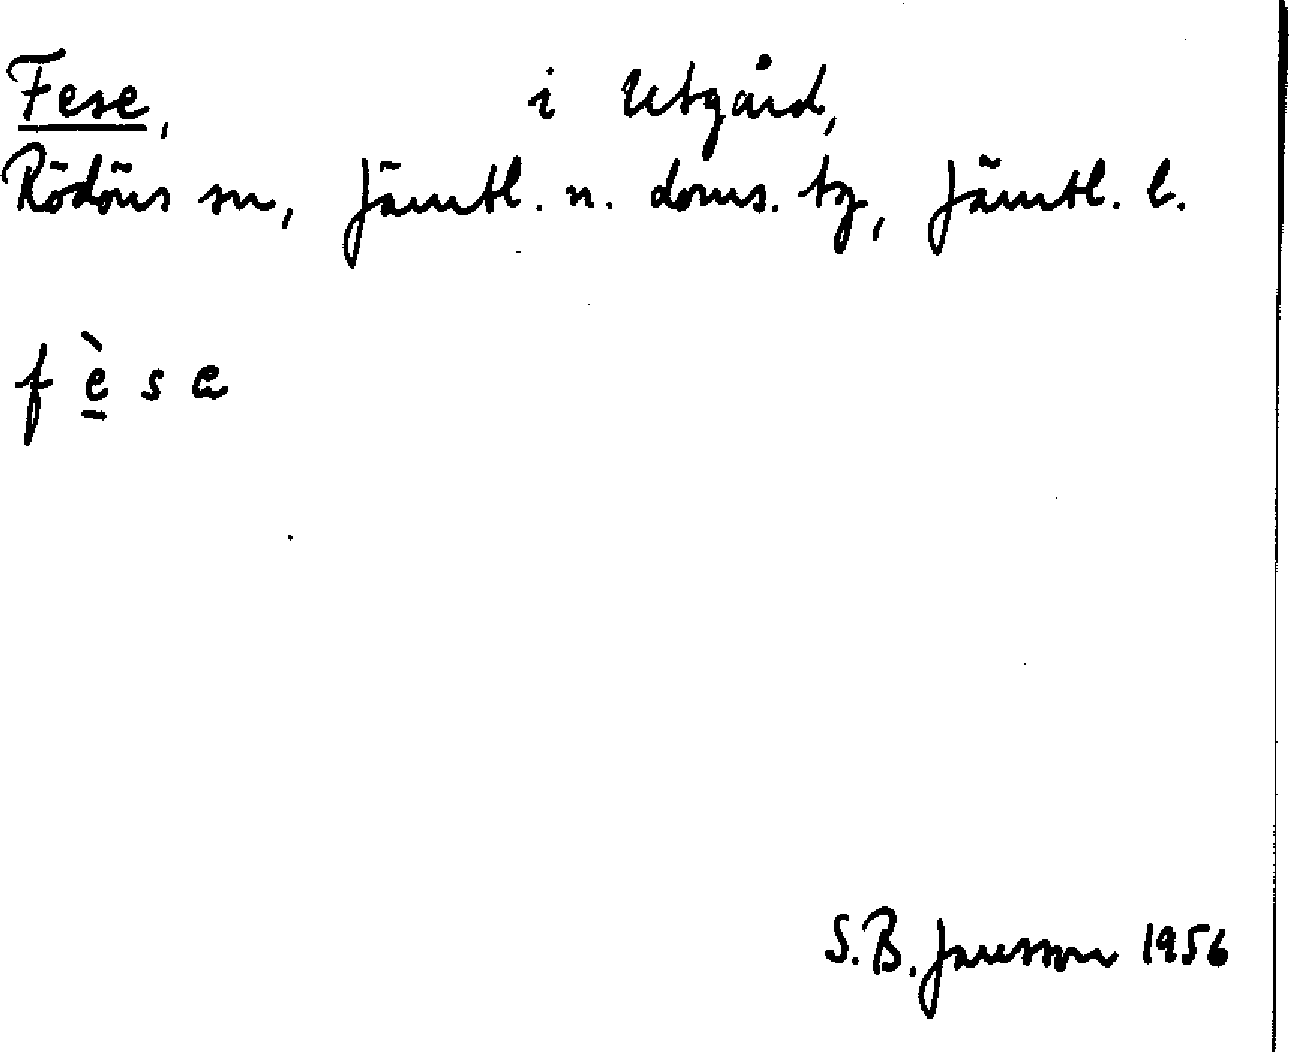 Fese, i Utgård,
Rödöns sn, Jämtl. n. doms. tg, Jämtl. l.
f è s e
S.B. Jansson 1956